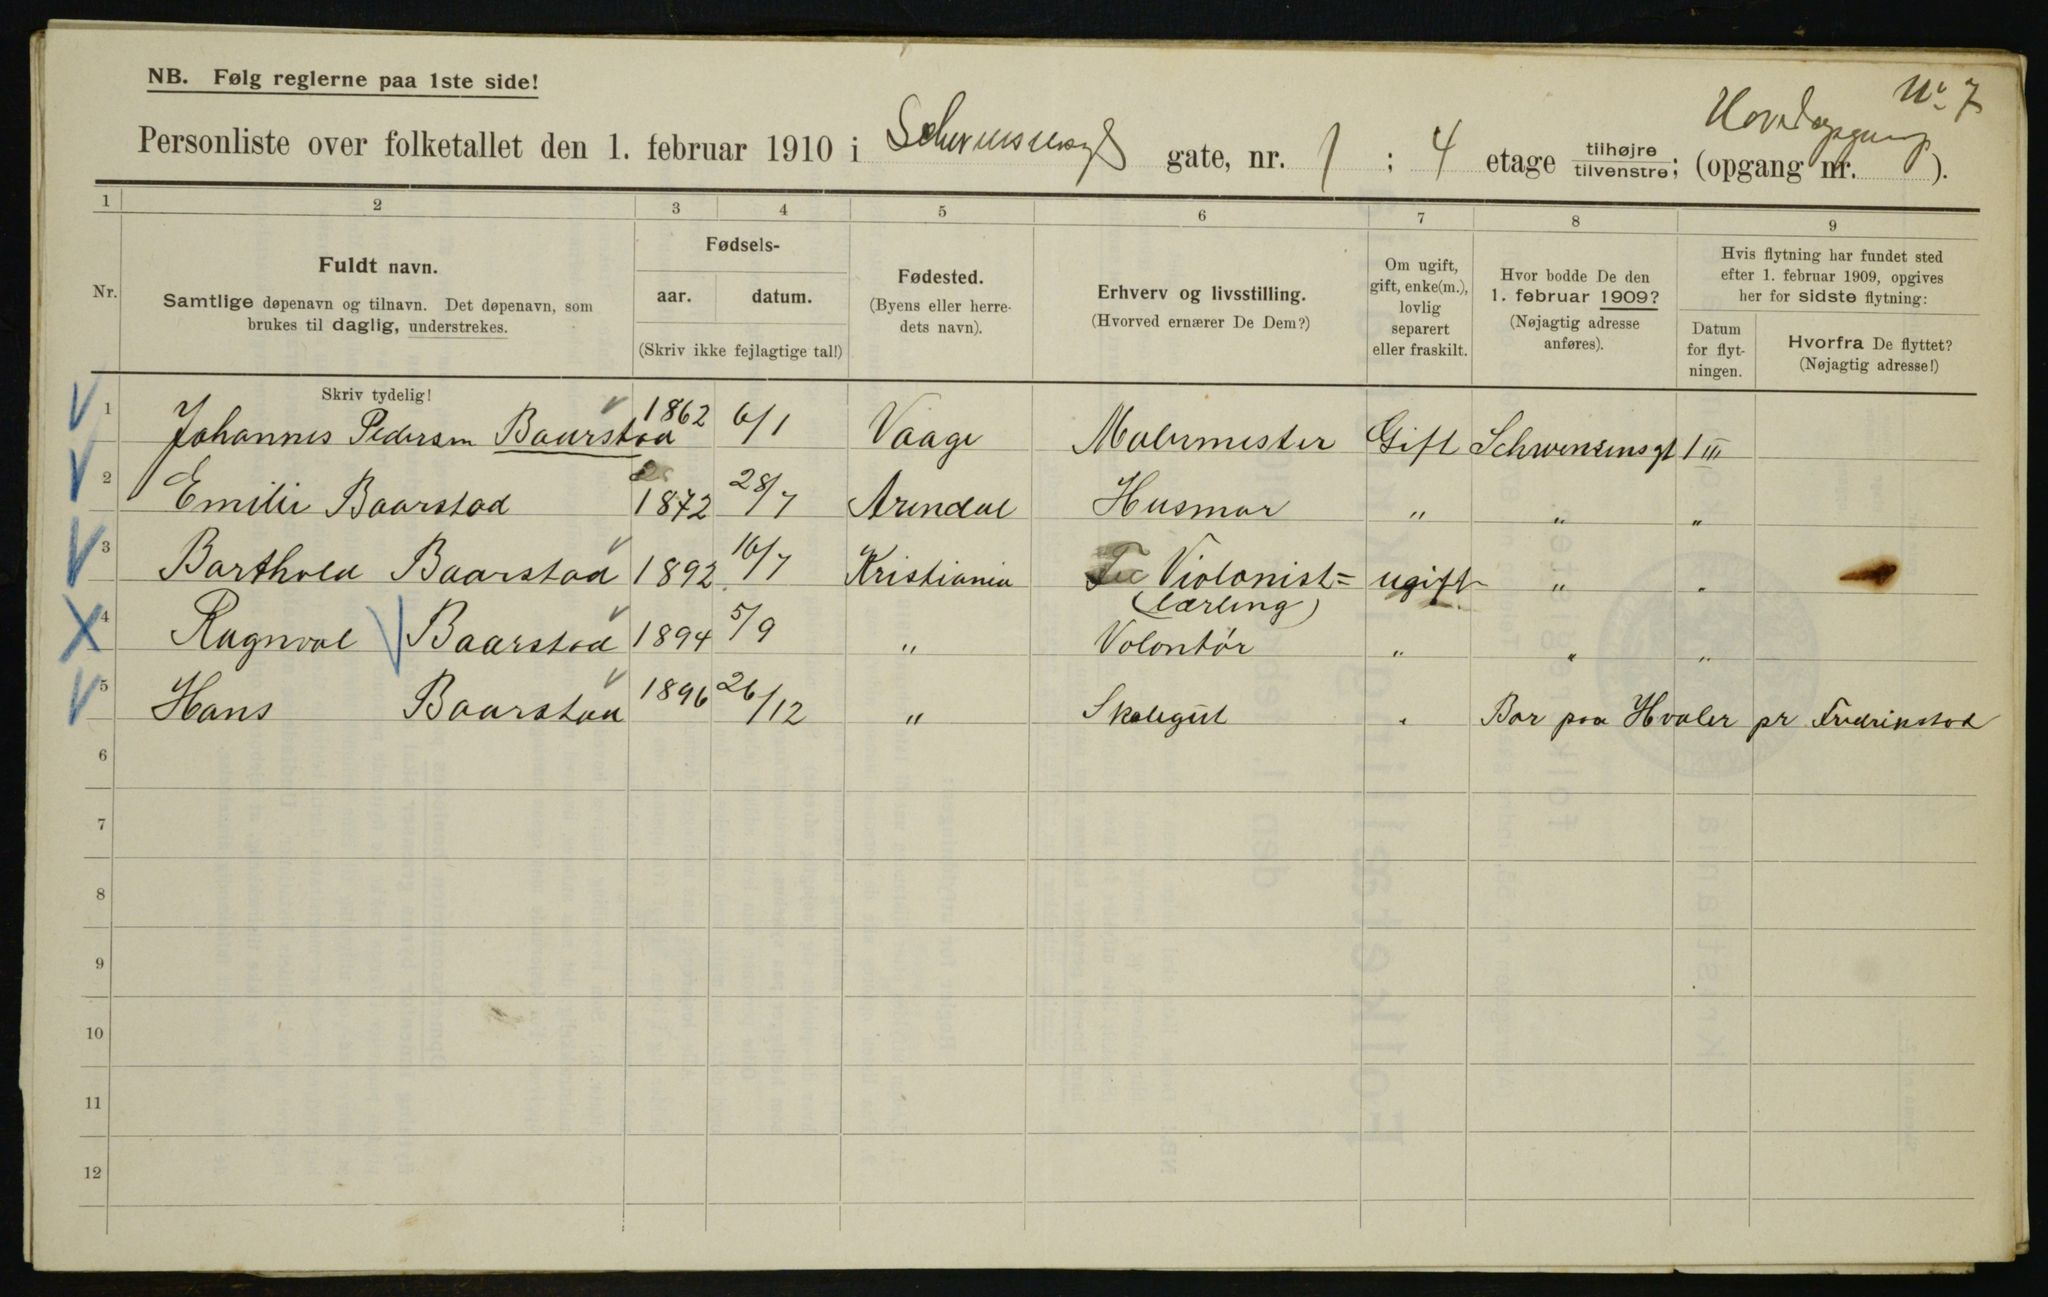 No 7
NB. Følg reglerne paa 1ste side!
Personliste over folketallet den 1. februar 1910 i Schwensensgt gate, nr. 1 ; 4 etage tilhøjre tilvenstre; (opgang nr. Hovedopgang ).
1 2 3 4 5 6 7 8 9
Nr.
Fuldt navn.
Samtlige døpenavn og tilnavn. Det døpenavn, som
brukes til daglig, understrekes.
Fødsels-
aar. datum.
(Skriv ikke fejlagtige tal!)
Fødested.
(Byens eller herre-
dets navn).
Erhverv og livsstilling.
(Hvorved ernærer De Dem?)
Om ugift,
gift, enke(m.),
lovlig
separert
eller fraskilt.
Hvor bodde De den
1. februar 1909?
(Nøjagtig adresse
anføres).
Hvis flytning har fundet sted
efter 1. februar 1909, opgives
her for sidste flytning:
Datum
for flyt-
ningen.
Hvorfra De flyttet?
(Nøjagtig adresse!)
Skriv tydelig!
1 Johannes Pedersen Baarstad 1862 6/1 Vaage Malermester Gift Schwensensgt 1 III
2 Emilie Baarstad 1872 28/7 Arendal Husmor " " "
3 Barthold Baarstad 1892 16/7 Kristiania Violonist= ugift " "
(lærling)
4 Ragnval Baarstad 1894 5/9 " Volontør " " "
5 Hans Baarstad 1896 26/12 " Skolegut " Bor paa Hvaler pr Fredrikstad
6
7
8
9
10
11
12